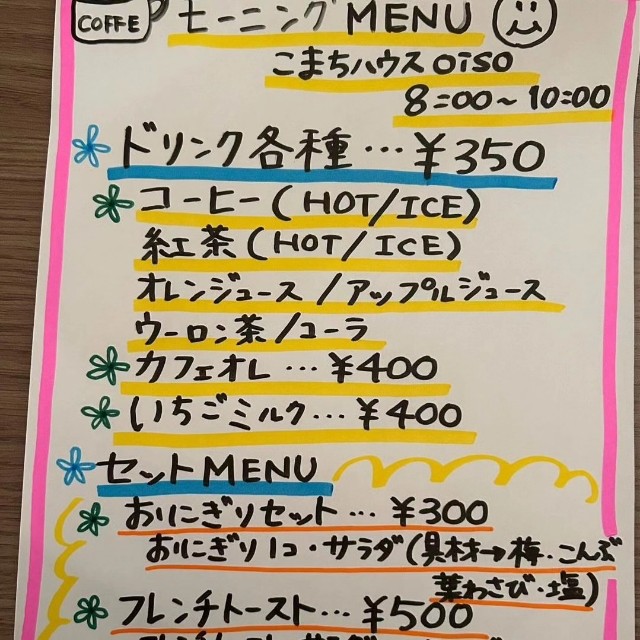 COFFE
モーニングMENU
こまちハウスoiso
8:00～10:00
ドリンク各種…¥350
コーヒー(HOT/ICE)
紅茶(HOT/ICE)
オレンジュース/アップルジュース
ウーロン茶/コーラ
カフェオレ…¥400
いちごミルク…¥400
セットMENU
おにぎりセット…¥300
おにぎり1コ・サラダ(具材→梅・こんぶ
葉わさび・塩)
フレンチトースト…¥500